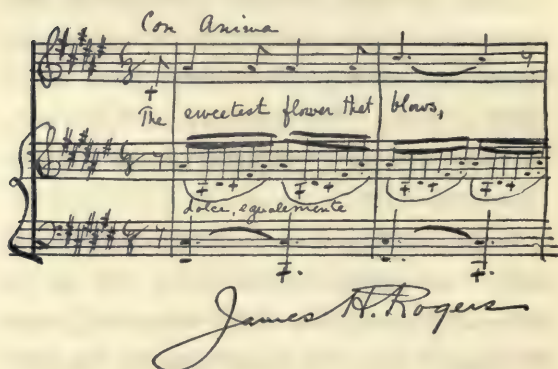 Con Anima
The sweetest flower that blows,
dolce, egualemente
James H. Rogers